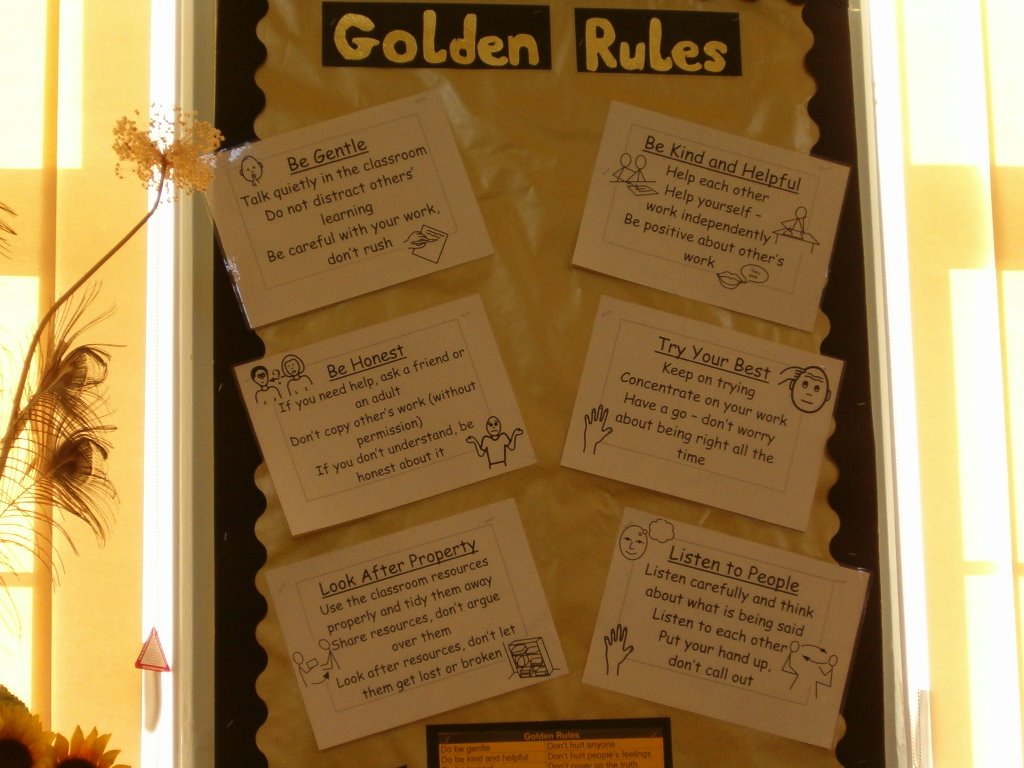 Golden Rules
Be Gentle
Talk quietly in the classroom
Do not distract others'
learning
Be careful with your work,
don't rush
Be Kind and Helpful
Help each other
Help yourself -
work independently
Be positive about other's
work
Be Honest
If you need help, ask a friend or
an adult
Don't copy other's work (without
permission)
If you don't understand, be
honest about it
Try Your Best
Keep on trying
Concentrate on your work
Have a go - don't worry
about being right all the
time
Look After Property
Use the classroom resources
properly and tidy them away
Share resources, don't argue
over them
Look after resources, don't let
them get lost or broken
Listen to People
Listen carefully and think
about what is being said
Listen to each other
Put your hand up,
don't call out
Golden Rules
Do be gentle
Don't hurt anyone
Do be kind and helpful
Don't hurt people's feelings
Don't cover up the truth